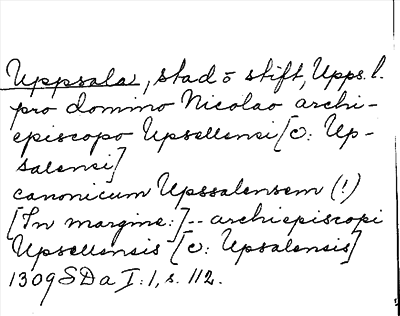 Uppsala, stad o stift, Upps. l.
pro domino Nicolao archi-
episcopo Upsellensi [ɔ: Up-
salensi]
canonicum Upssalensem (!)
[In margine:] -- archiepiscopi
Upsellensis [ɔ: Upsalensis]
1309 SD a I: 1, s. 112.